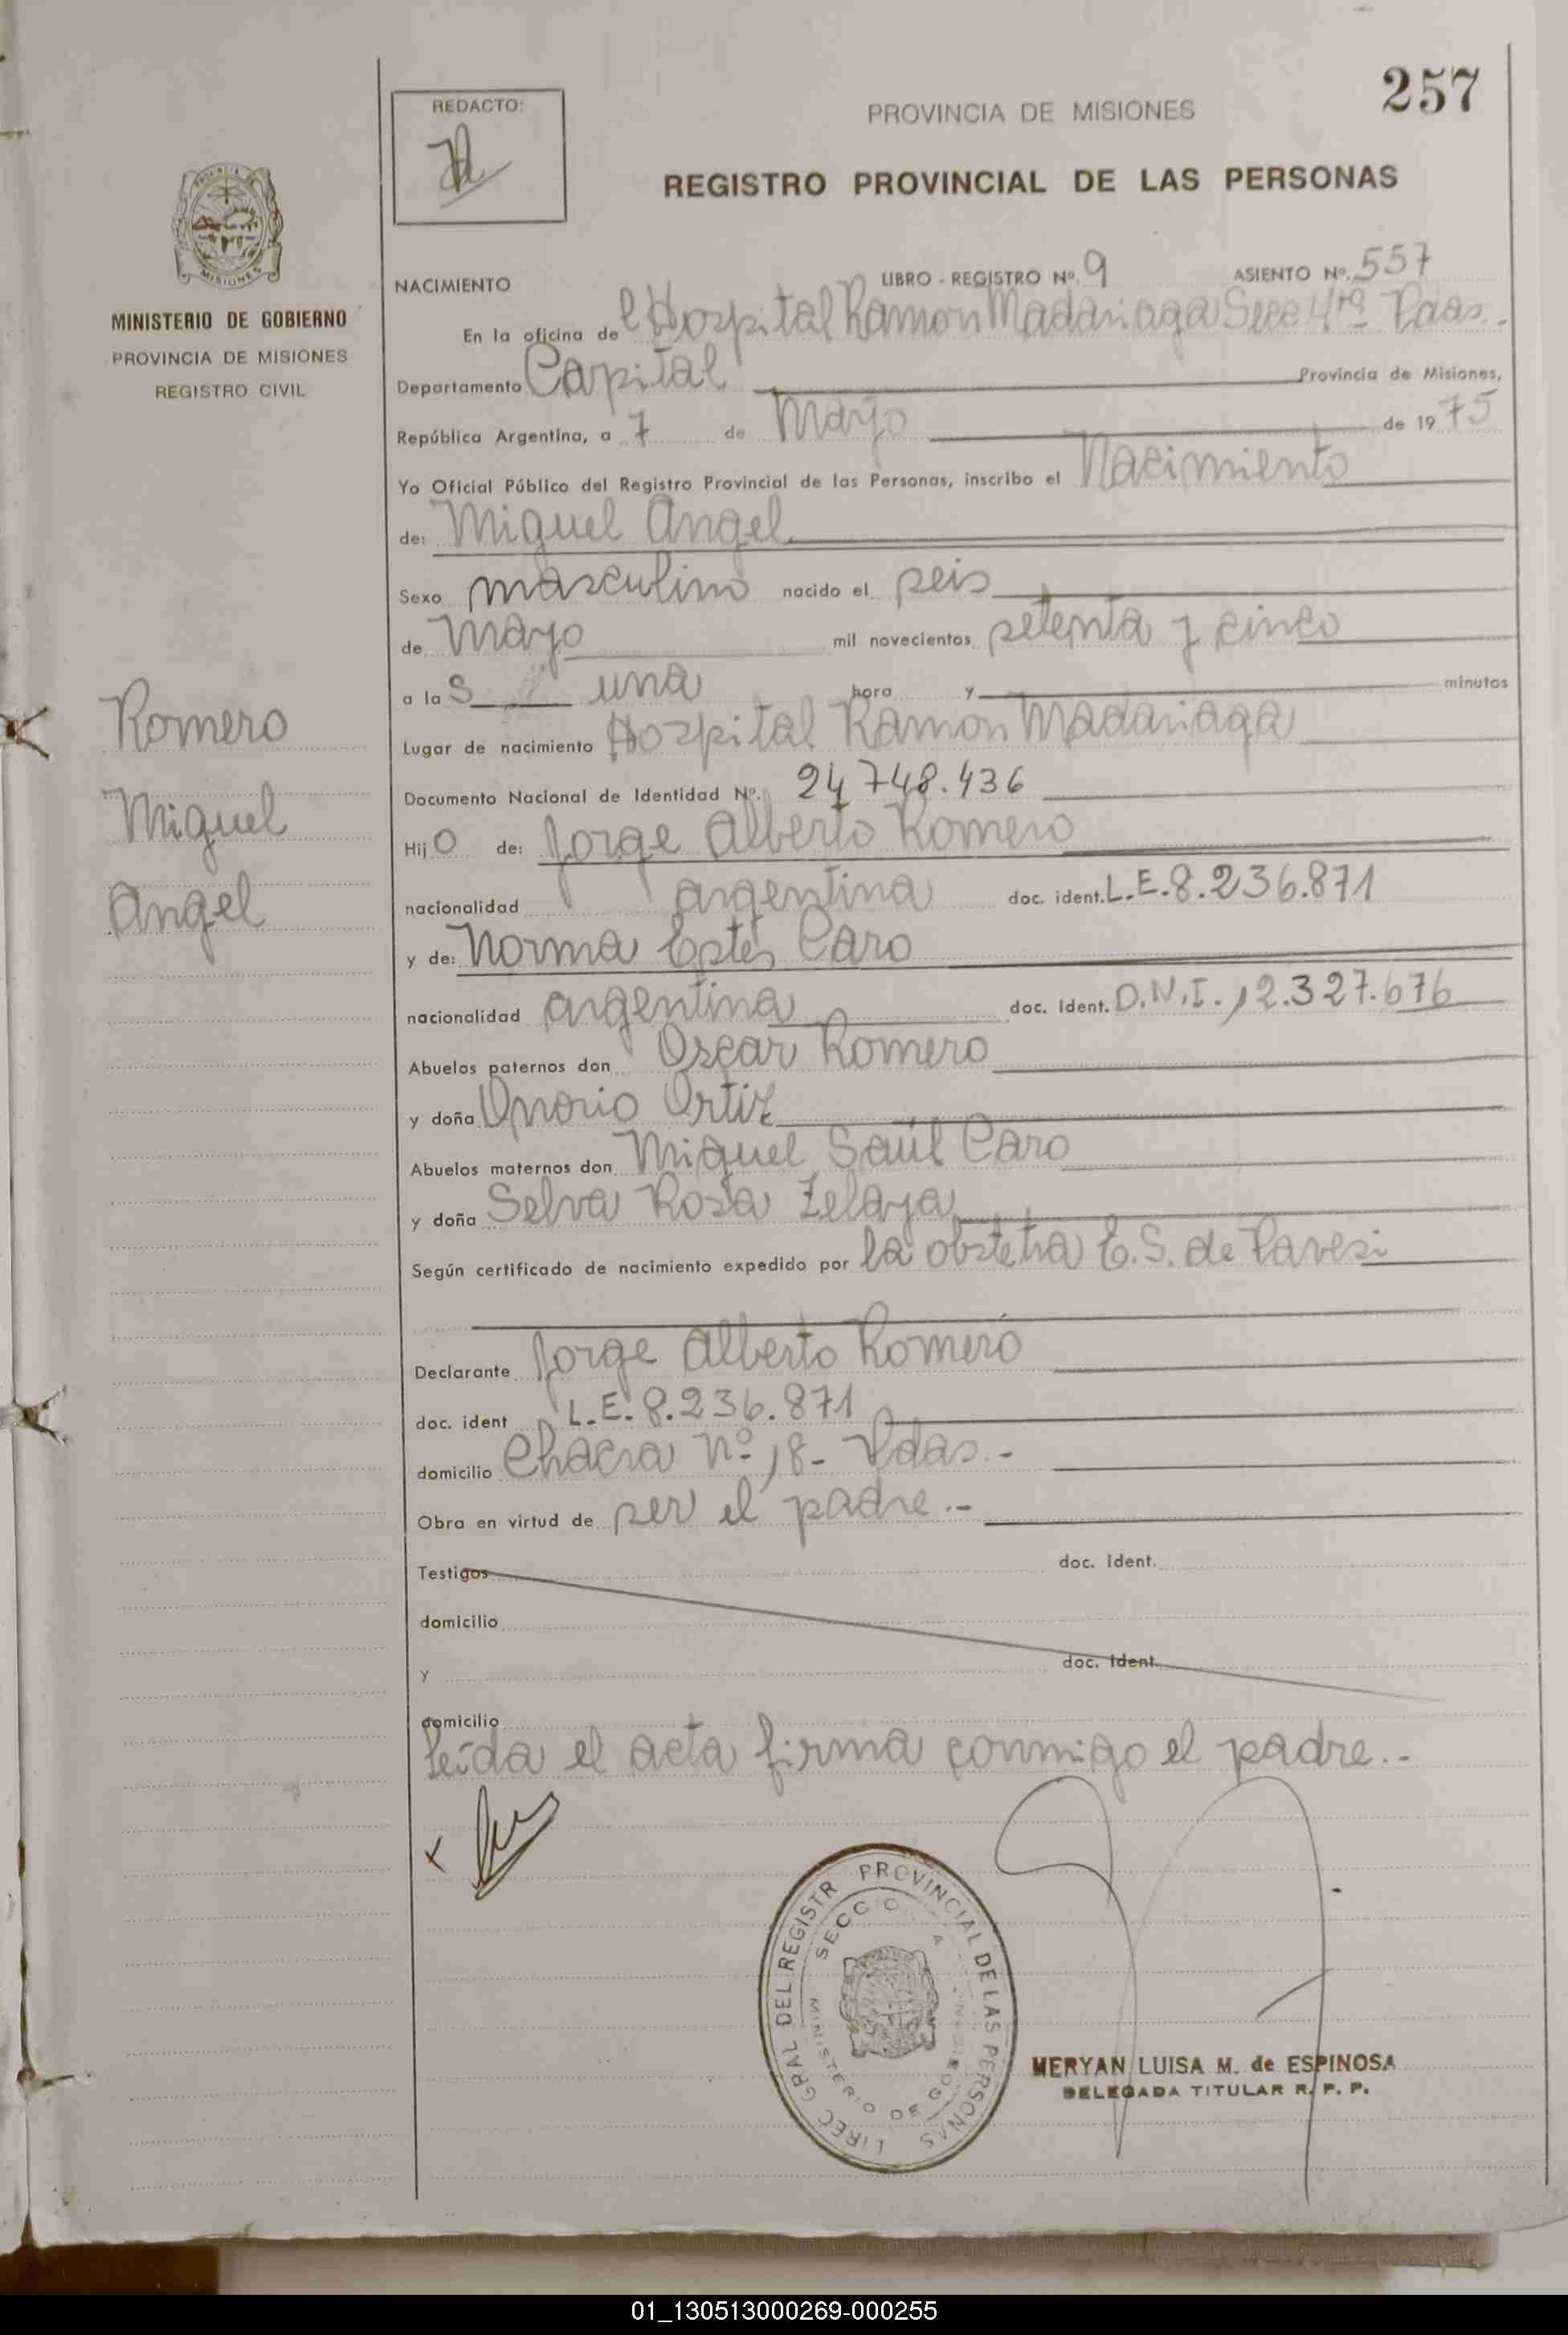 257
REDACTO:
PROVINCIA DE MISIONES
REGISTRO PROVINCIAL DE LAS PERSONAS
MISIONES
MINISTERIO DE GOBIERNO
PROVINCIA DE MISIONES
REGISTRO CIVIL
Romero
Miguel
Angel
NACIMIENTO LIBRO - REGISTRO Nº 9 ASIENTO Nº 557
En la oficina de l Hospital Ramon Madariaga Secc 4ta Pdas.-
Departamento Capital Provincia de Misiones,
República Argentina, a 7 de Mayo de 1975
Yo Oficial Público del Registro Provincial de las Personas, inscribo el Nacimiento
de: Miguel Angel
Sexo masculino nacido el seis
de Mayo mil novecientos setenta y cinco
a las una hora y minutos
Lugar de nacimiento Hospital Ramon Madariaga
Documento Nacional de Identidad Nº. 24 748.436
Hijo de: Jorge Alberto Romero
nacionalidad argentina doc. ident. L.E. 8.236.871
y de: Norma Caro
nacionalidad argentina doc. Ident. D.N.I. 12.327.676
Abuelos paternos don Oscar Romero
y doña Onorio Ortiz
Abuelos maternos don Miguel Saúl Caro
y doña Selva Rosa Zelaya
Según certificado de nacimiento expedido por la obstetra E.S. de Pavesi
Declarante Jorge Alberto Romero
doc. ident L.E. 8.236.871
domicilio Chacra Nº 18- Pdas.-
Obra en virtud de ser el padre.-
Testigos doc. ident.
domicilio
y doc. Ident.
domicilio
Leída el acta firma conmigo el padre.-
x
DIREC GRAL DEL REGISTR PROVINCIAL DE LAS PERSONAS
SECCIO A
MINISTERIO DE GOB
MERYAN LUISA M. de ESPINOSA
DELEGADA TITULAR R. P. P.
01_130513000269-000255